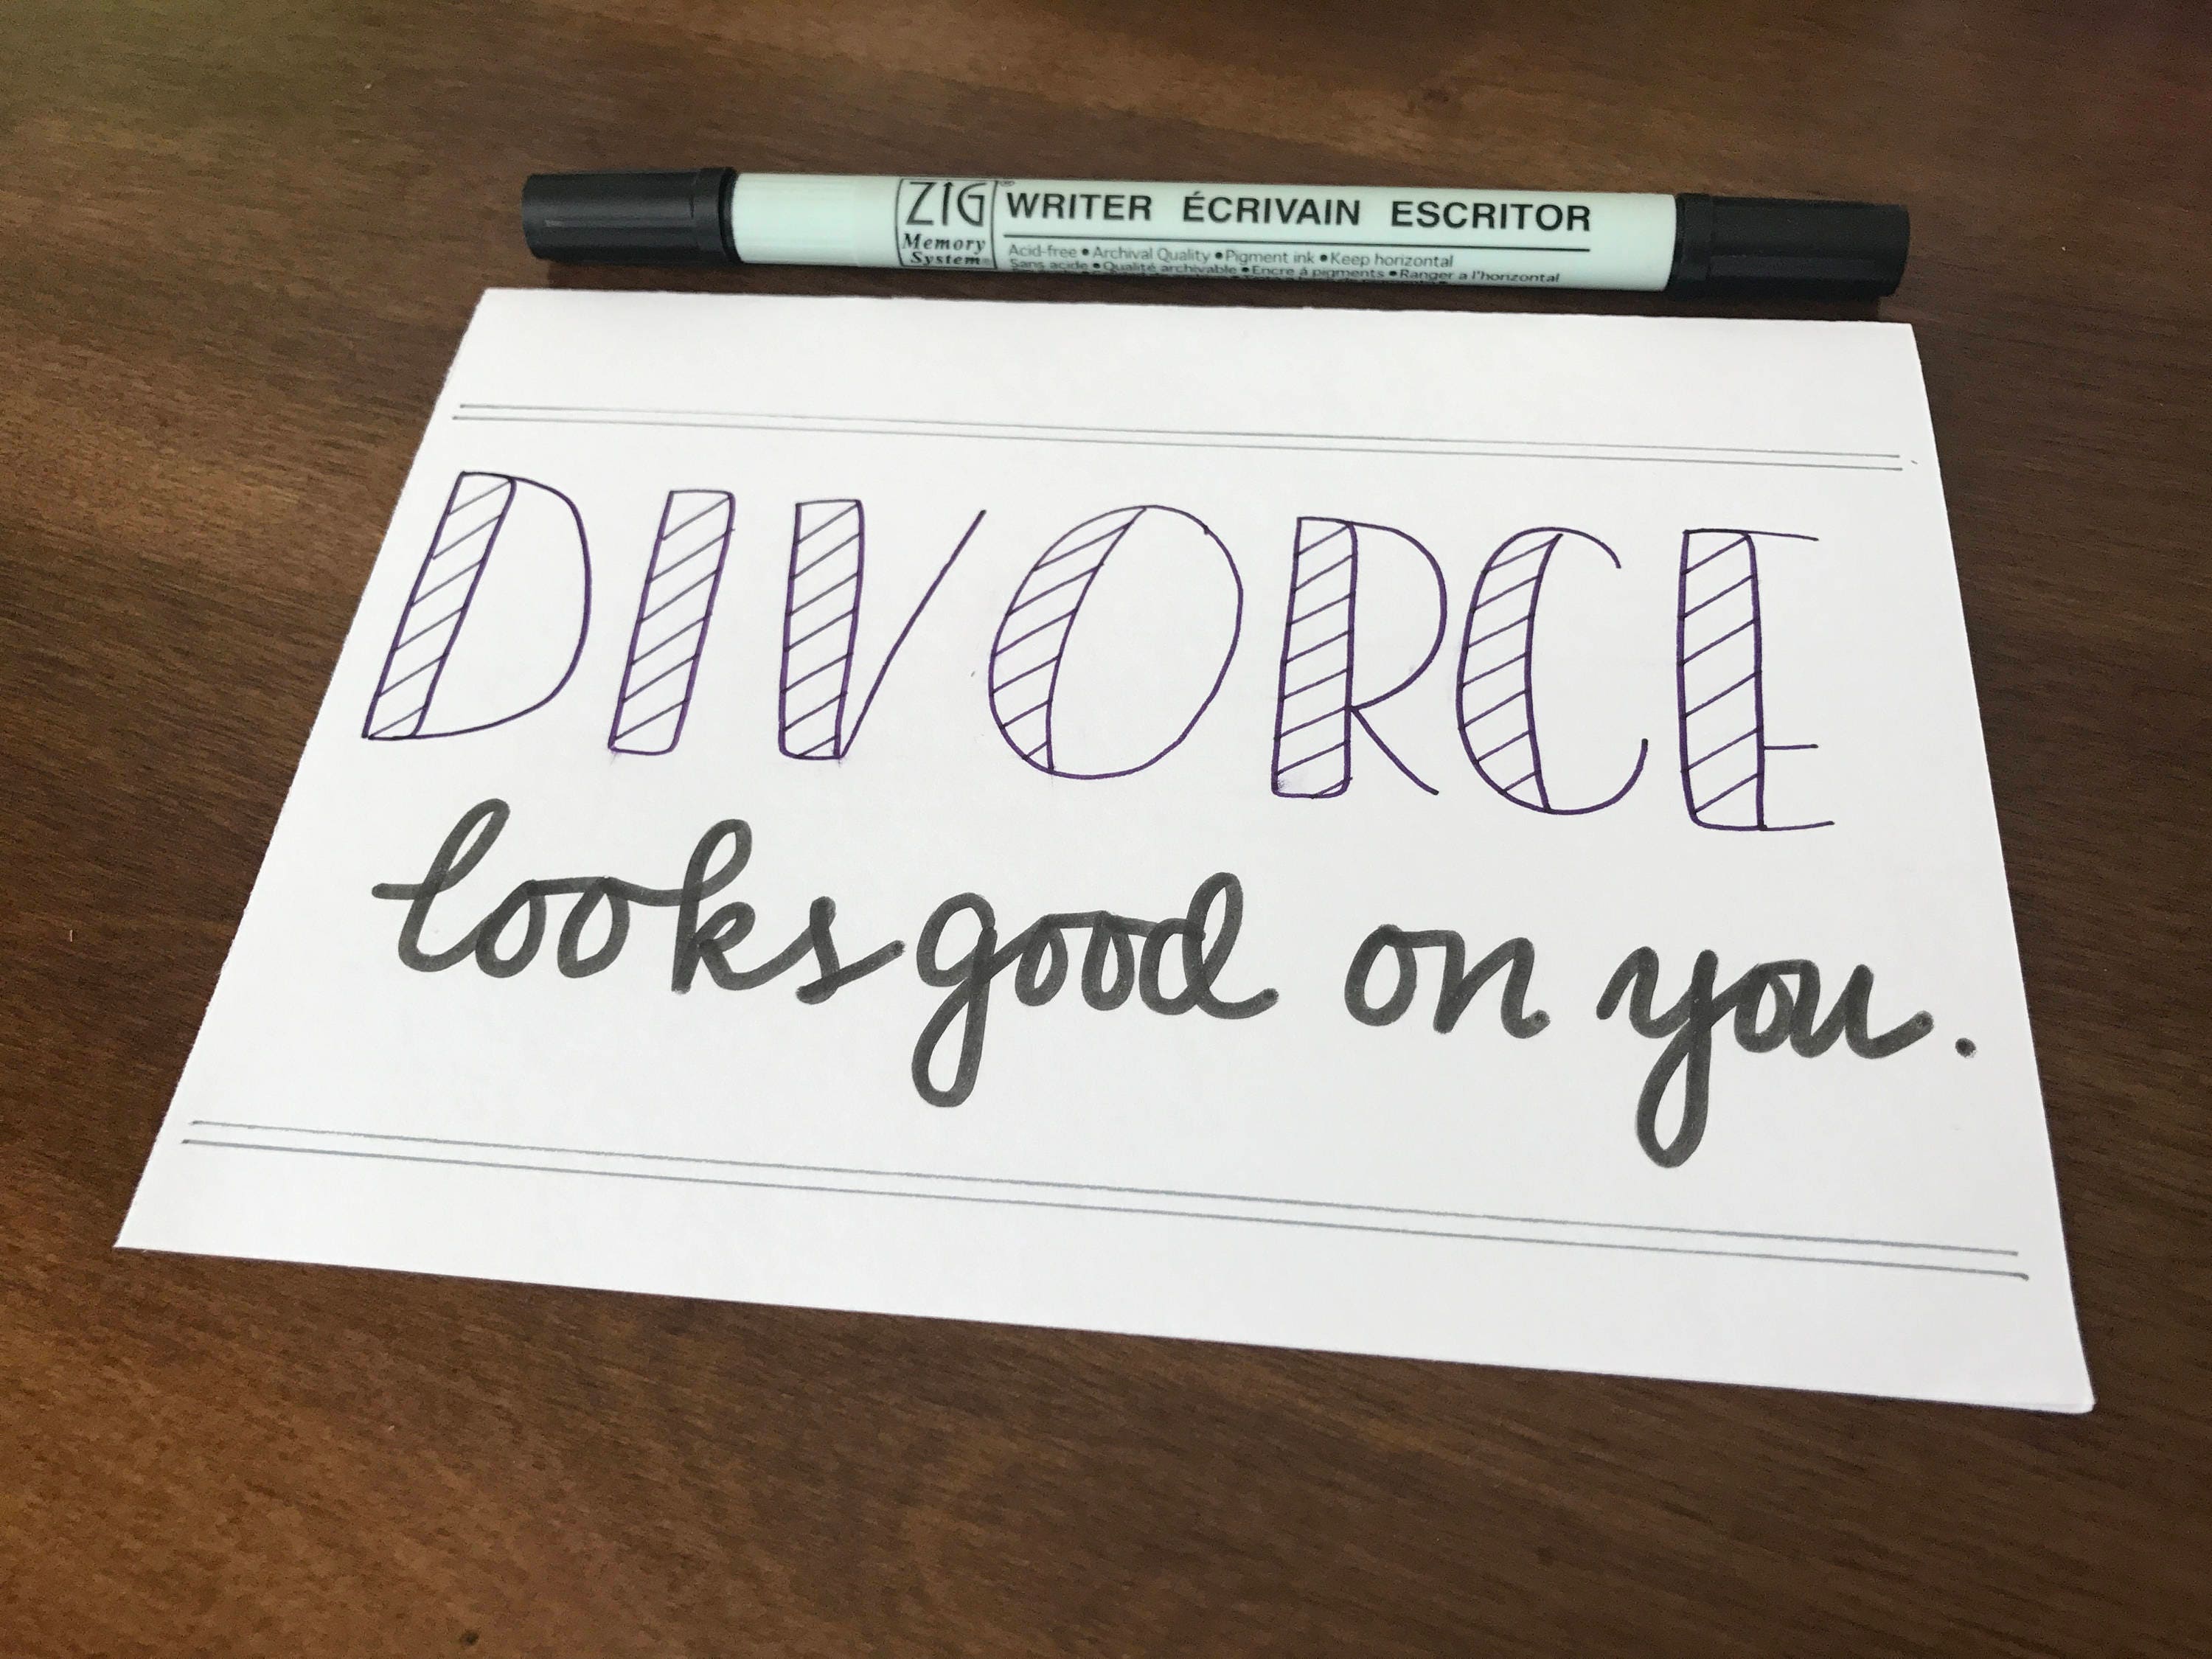 ZIG® WRITER ÉCRIVAIN ESCRITOR
Memory
System®
Acid-free • Archival Quality • Pigment ink • Keep horizontal
Sans acide • Qualité archivable • Encre á pigments • Ranger a l'horizontal
DIVORCE
looks good on you.